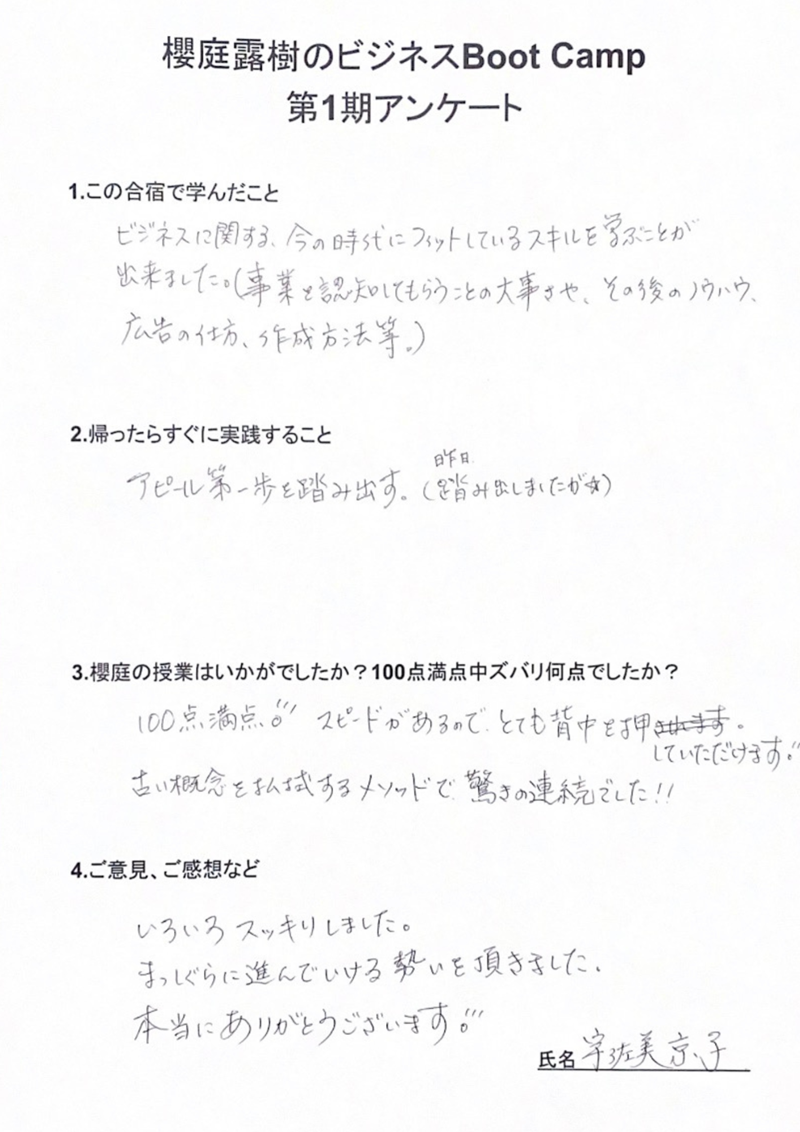 櫻庭露樹のビジネスBoot Camp
第1期アンケート
1.この合宿で学んだこと
ビジネスに関する、今の時代にフィットしているスキルを学ぶことが
出来ました。(事業を認知してもらうことの大事さや、その後のノウハウ、
広告の仕方、作成方法等。)
2.帰ったらすぐに実践すること
昨日
アピール第一歩を踏み出す。(踏み出しましたが☆)
3.櫻庭の授業はいかがでしたか？100点満点中ズバリ何点でしたか？
100点満点。!!! スピードがあるので、とても背中を押 。
していただけます。!!
古い概念を払拭するメソッドで、驚きの連続でした!!
4.ご意見、ご感想など
いろいろスッキリしました。
まっしぐらに進んでいける勢いを頂きました、
本当にありがとうございます。!!!
氏名 宇佐美京子